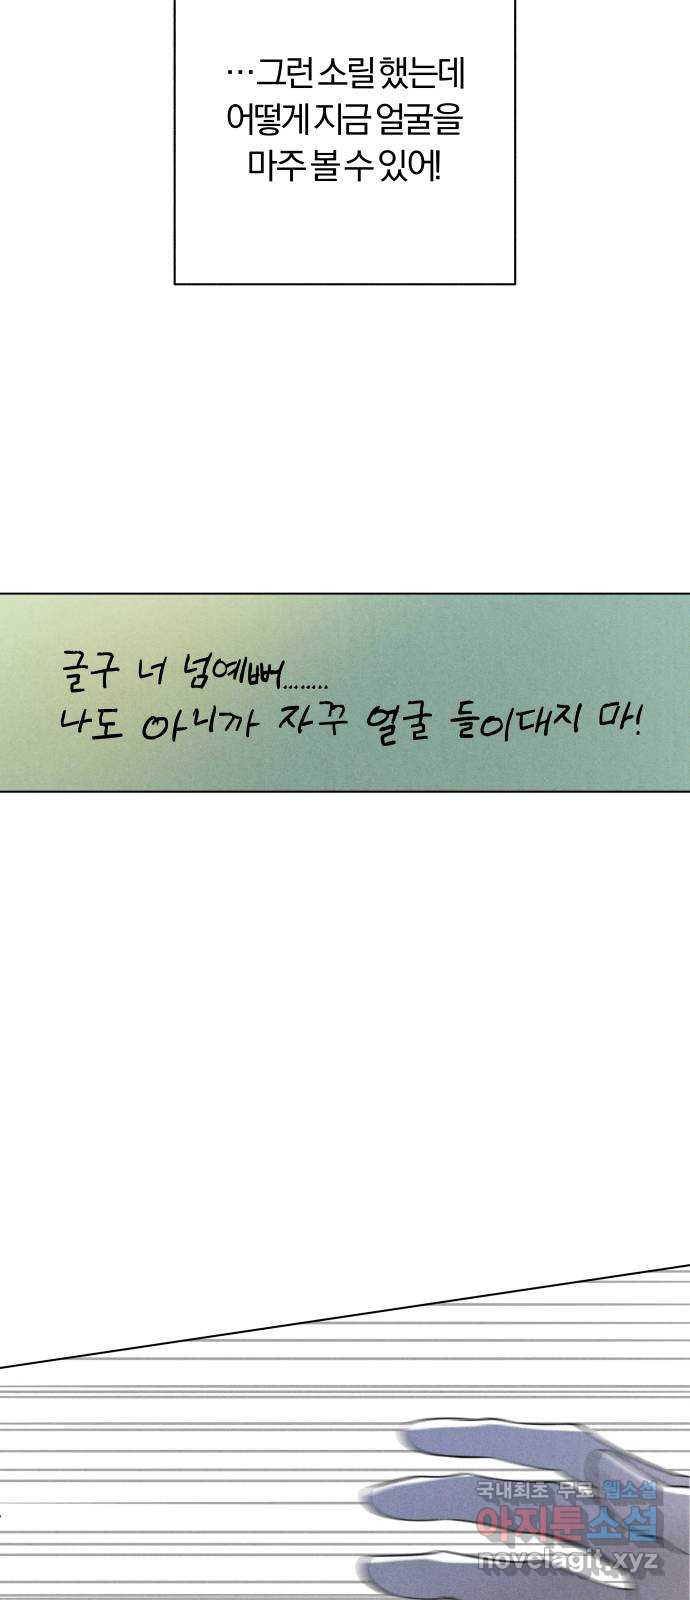 …그런 소릴 했는데
어떻게 지금 얼굴을
마주 볼 수 있어!
글구 너 넘예뻐........
나도 아니까 자꾸 얼굴 들이대지 마!
국내최초 무료 웹소설
아지툰소설
novelagit.xyz